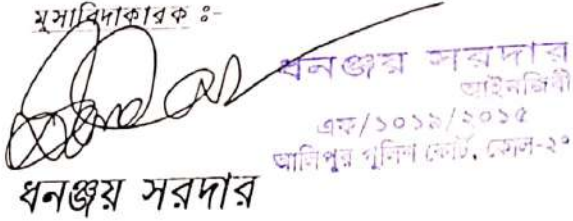 মুসাবিদাকারক ঃ-
ধনঞ্জয় সরদার
আইনজিবী
এফ/১০১৯/২০১৫
আলিপুর পুলিশ কোর্ট, কোল-২৭
ধনঞ্জয় সরদার